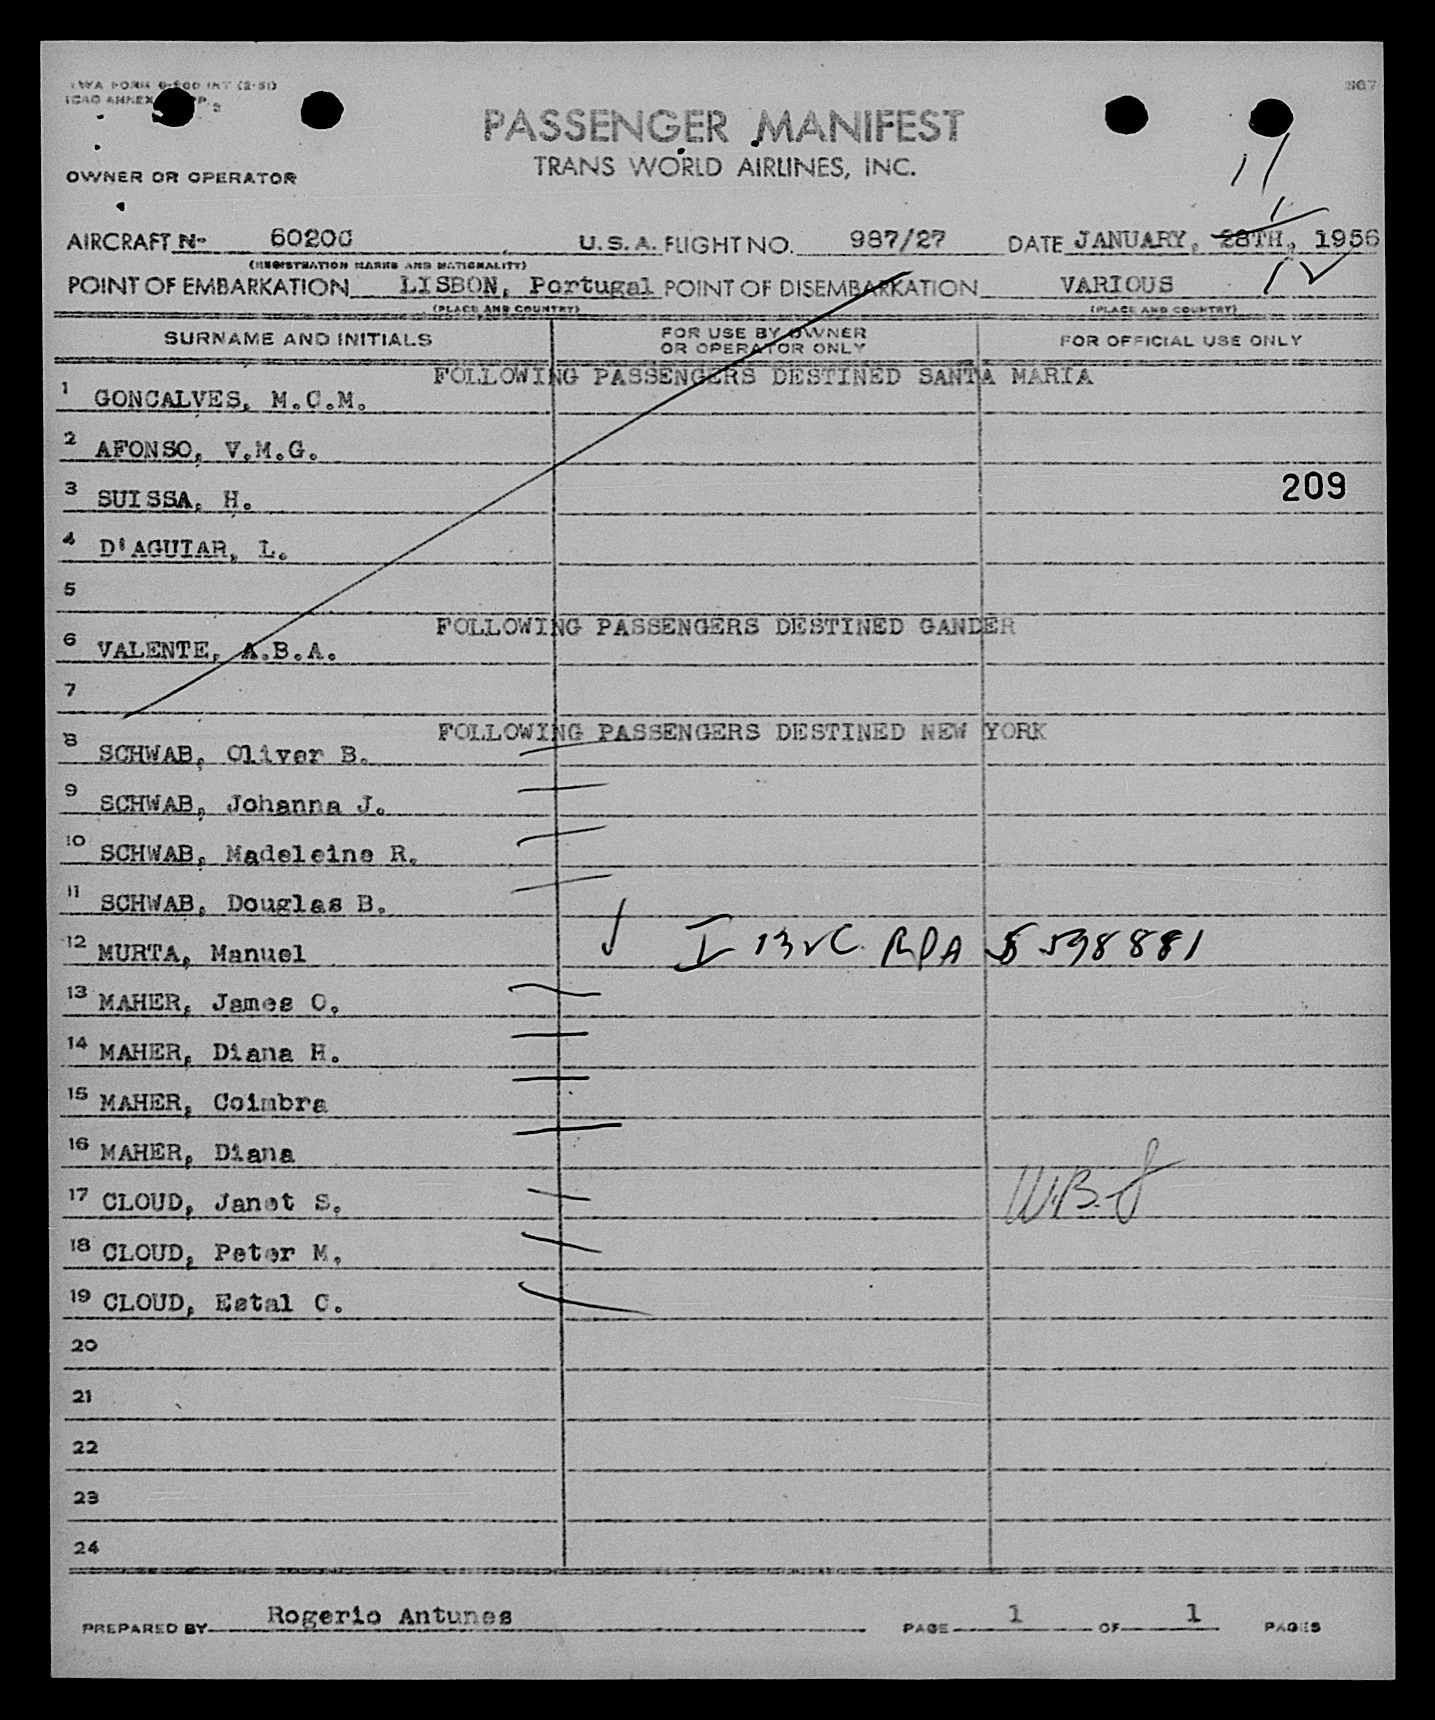 TWA FORM INT (2-51)
ICAO ANNEX
367
PASSENGER MANIFEST
TRANS WORLD AIRLINES, INC.
OWNER OR OPERATOR
11
AIRCRAFT N- 6020C U.S.A. FLIGHT NO. 987/27 DATE JANUARY, 28TH, 1956
(REGISTRATION MARKS AND NATIONALITY)
POINT OF EMBARKATION LISBON, Portugal POINT OF DISEMBARKATION VARIOUS
(PLACE AND COUNTRY) (PLACE AND COUNTRY)
SURNAME AND INITIALS FOR USE BY OWNER OR OPERATOR ONLY FOR OFFICIAL USE ONLY
FOLLOWING PASSENGERS DESTINED SANTA MARIA
1 GONCALVES, M.C.M.
2 AFONSO, V.M.G.
3 SUISSA, H. 209
4 D'AGUIAR, L.
5
FOLLOWING PASSENGERS DESTINED GANDER
6 VALENTE, A.B.A.
7
FOLLOWING PASSENGERS DESTINED NEW YORK
8 SCHWAB, Oliver B.
9 SCHWAB, Johanna J.
10 SCHWAB, Madeleine R.
11 SCHWAB, Douglas B.
12 MURTA, Manuel I 132C 598881
13 MAHER, James O.
14 MAHER, Diana H.
15 MAHER, Coimbra
16 MAHER, Diana
17 CLOUD, Janet S.
18 CLOUD, Peter M.
19 CLOUD, Estal C.
20
21
22
23
24
PREPARED BY Rogerio Antunes PAGE 1 OF 1 PAGES